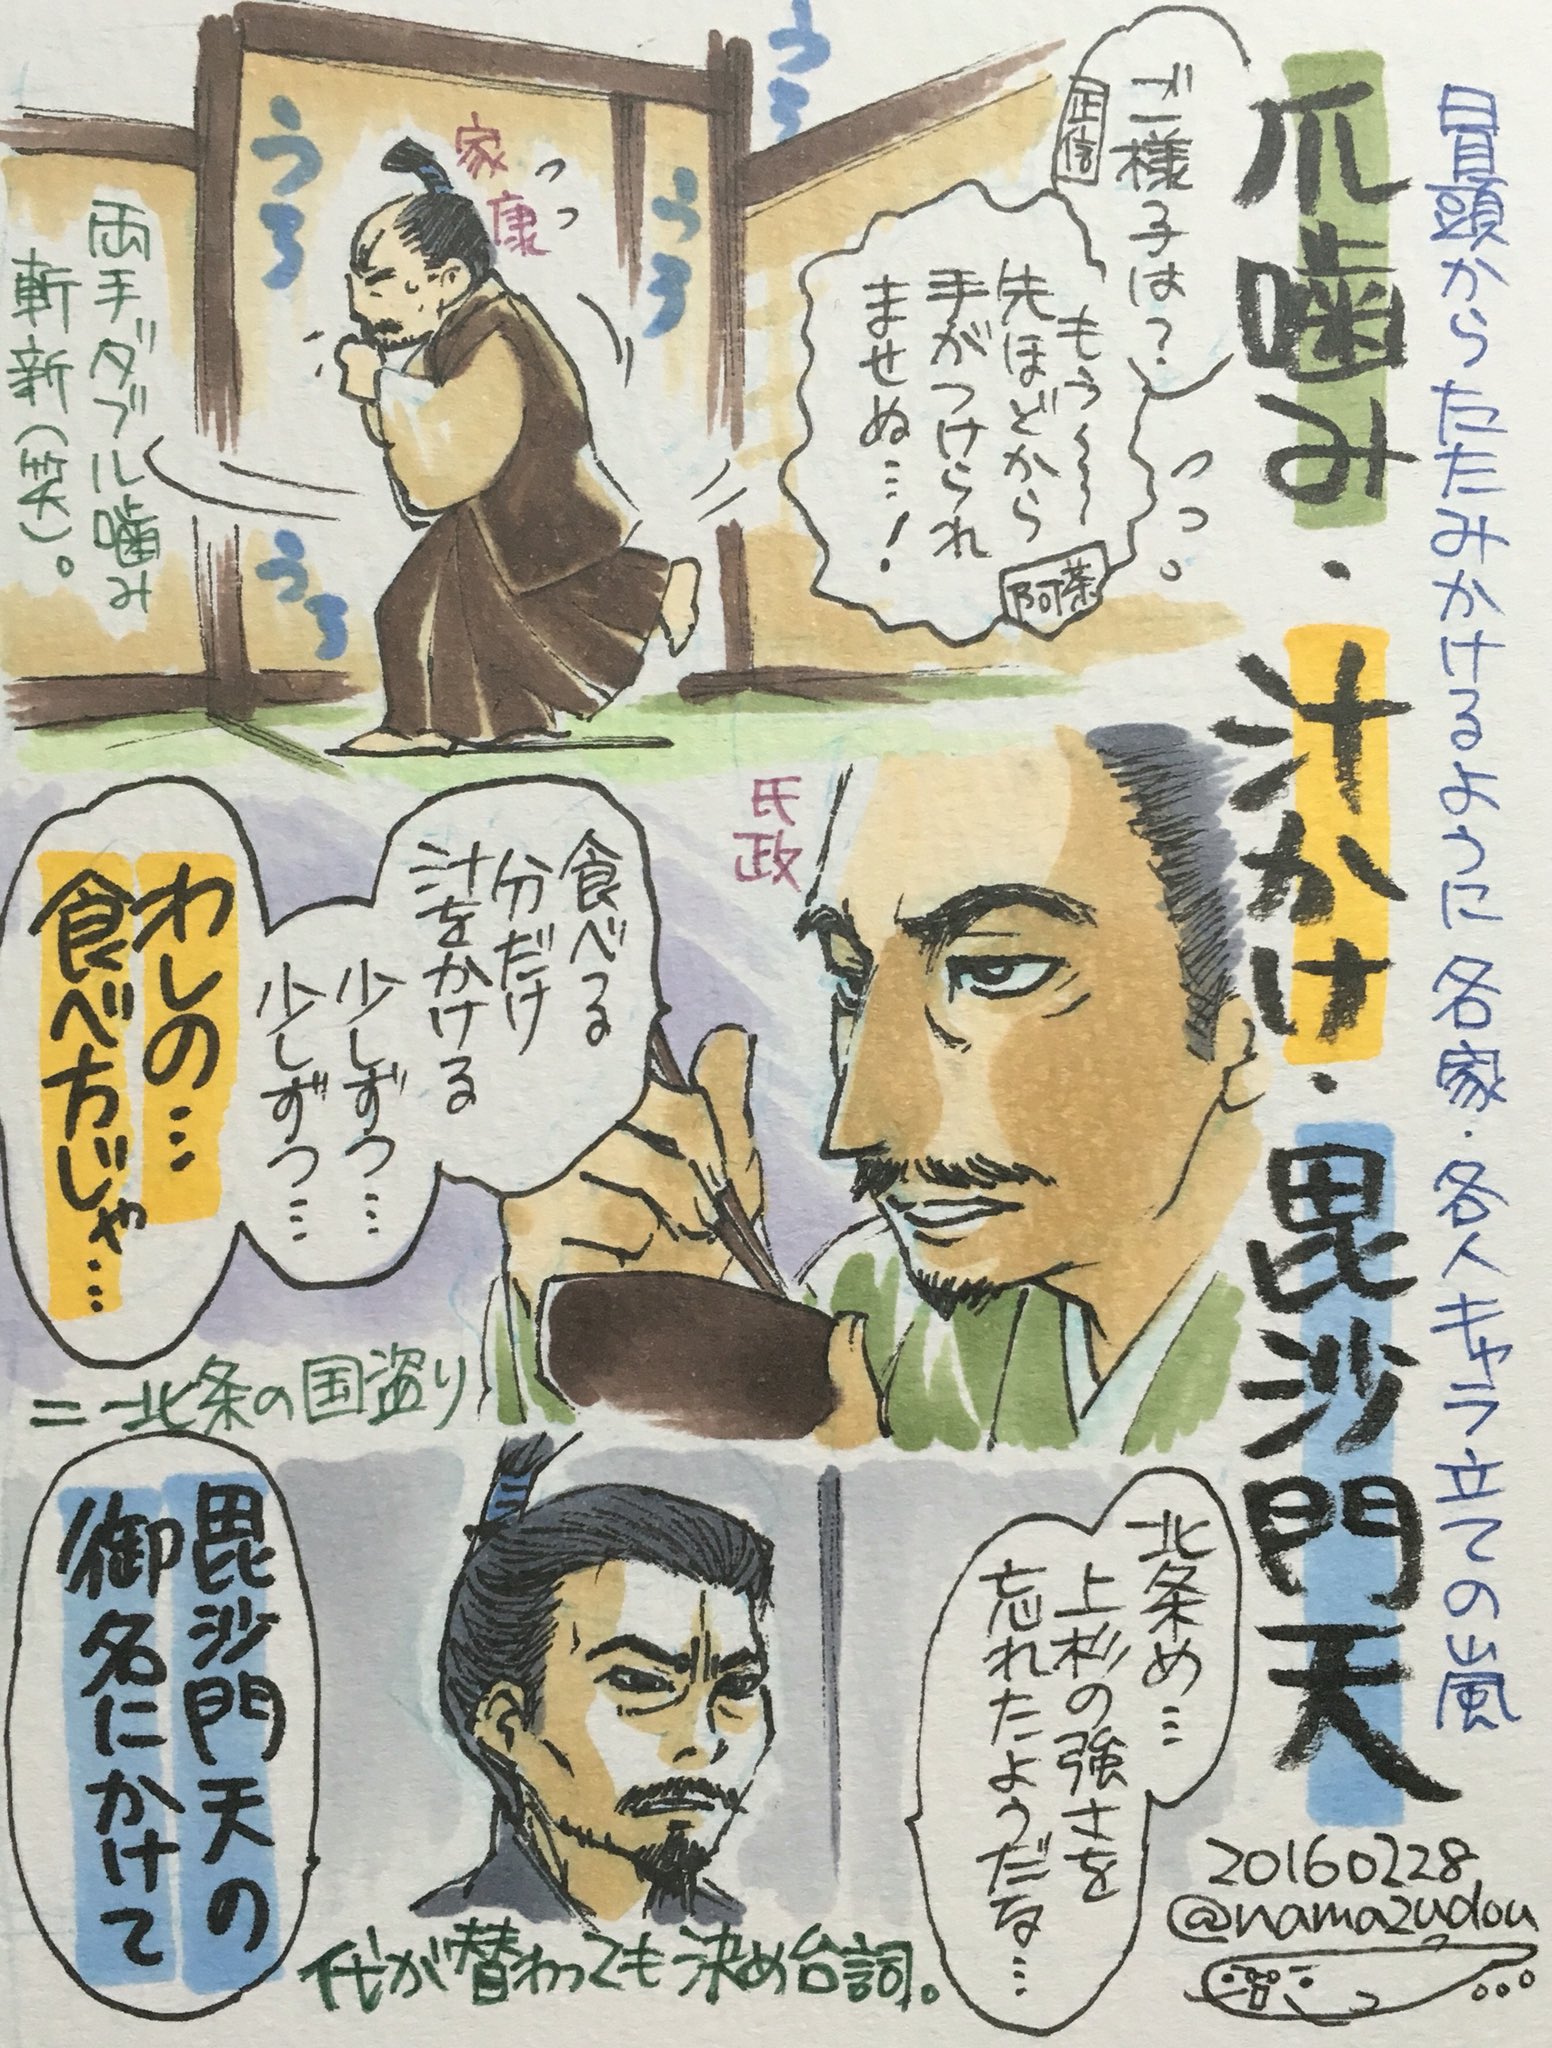 冒頭からたたみかけるように名家・各人キャラ立ての嵐
爪噛み・汁かけ・毘沙門天
ご様子は？
正信
もう〜〜
先ほどから
手がつけられ
ませぬ…！
阿茶
うろ
うろ
うろ
うろ
家康
両手ダブル噛み
斬新（笑）。
氏政
食べる
分だけ
汁をかける
少しずつ…
少しずつ…
わしの…
食べ方じゃ…
＝北条の国盗り
北条め…
上杉の強さを
忘れたようだな…
毘沙門天の
御名にかけて
代が替わっても決め台詞。
20160228
@namazudou